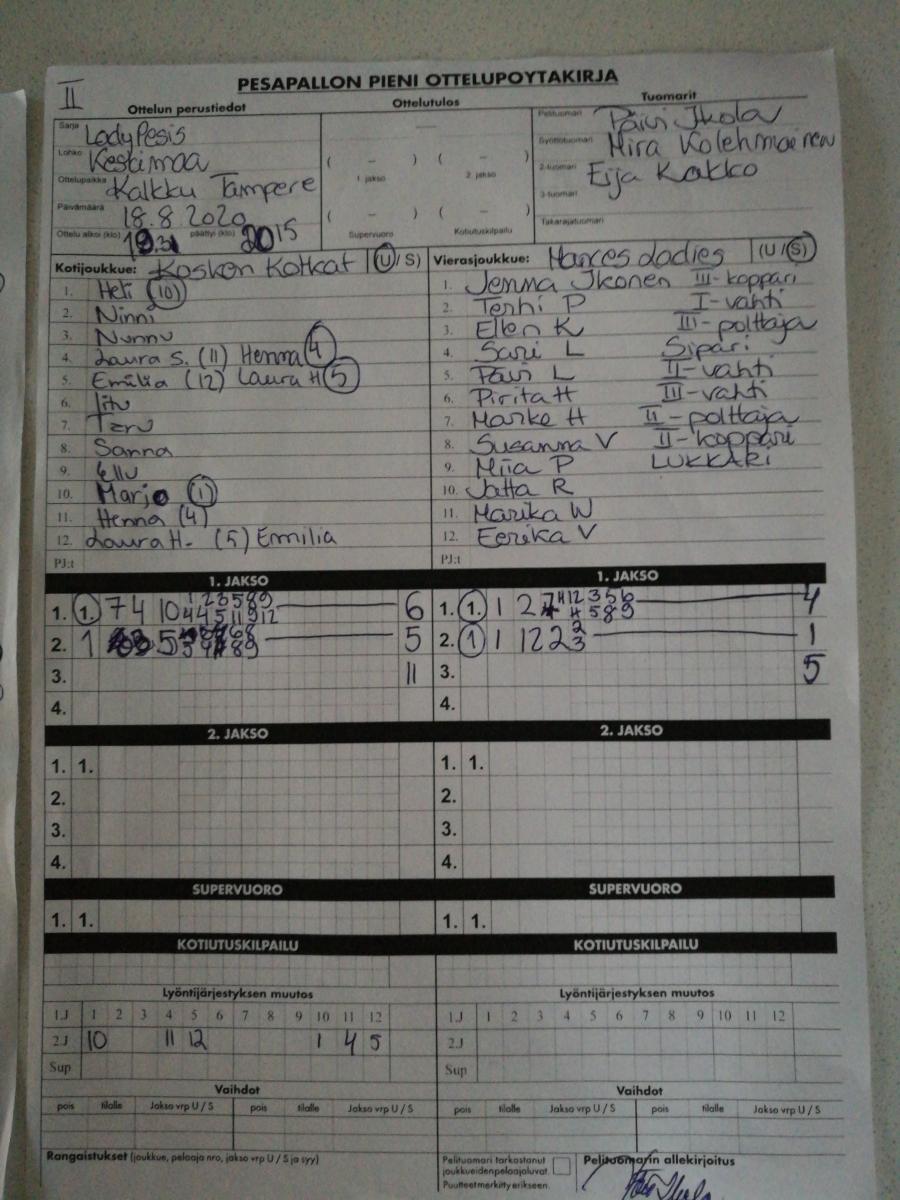 II
PESAPALLON PIENI OTTELUPOYTAKIRJA
Ottelun perustiedot
Ottelutulos
Tuomarit
Sarja LadyPesis
Lohko Keskimaa
Ottelupaikka Kalkku Tampere
Päivämäärä 18.8.2020
Ottelu alkoi (klo) päättyi (klo) 2015
( – ) ( – )
1. jakso 2. jakso
( – ) ( – )
Supervuoro Kotiutuskilpailu
Pelituomari Päivi Ikola
Syöttötuomari Mira Kolehmainen
2-tuomari Eija Kakko
3-tuomari
Takarajatuomari
Kotijoukkue: Kosken Kotkat (U / S)
1. Heli (10)
2. Ninni
3. Nunnu
4. Laura S. (11) Henna 4
5. Emilia (12) Laura H 5
6. Iitu
7. Taru
8. Sanna
9. Ellu
10. Marjo (1)
11. Henna (4)
12. Laura H. (5) Emilia
PJ:t
Vierasjoukkue: Mances Ladies (U / S)
1. Jemma Ikonen III-koppari
2. Terhi P I-vahti
3. Ellen K III-polttaja
4. Sari L Sipari
5. Päivi L II-vahti
6. Pirita H III-vahti
7. Marke H II-polttaja
8. Susanna V II-koppari
9. Miia P LUKKARI
10. Jatta R
11. Marika W
12. Eerika V
PJ:t
1. JAKSO
1. 1. 7 4 10 6
2. 1 5
3. 11
4.
1. JAKSO
1. 1. 1 2 4
2. 1 1 12 2 1
3. 5
4.
2. JAKSO
1. 1.
2.
3.
4.
2. JAKSO
1. 1.
2.
3.
4.
SUPERVUORO
1. 1.
SUPERVUORO
1. 1.
KOTIUTUSKILPAILU
KOTIUTUSKILPAILU
Lyöntijärjestyksen muutos
1.J 1 2 3 4 5 6 7 8 9 10 11 12
2.J 10 11 12 1 4 5
Sup
Lyöntijärjestyksen muutos
1.J 1 2 3 4 5 6 7 8 9 10 11 12
2.J
Sup
Vaihdot
pois tilalle Jakso vrp U / S pois tilalle Jakso vrp U / S
Vaihdot
pois tilalle Jakso vrp U / S pois tilalle Jakso vrp U / S
Rangaistukset (joukkue, pelaaja nro, jakso vrp U / S ja syy)
Pelituomari tarkastanut
joukkueiden pelaajaluvat.
Puutteet merkitty erikseen.
Pelituomarin allekirjoitus